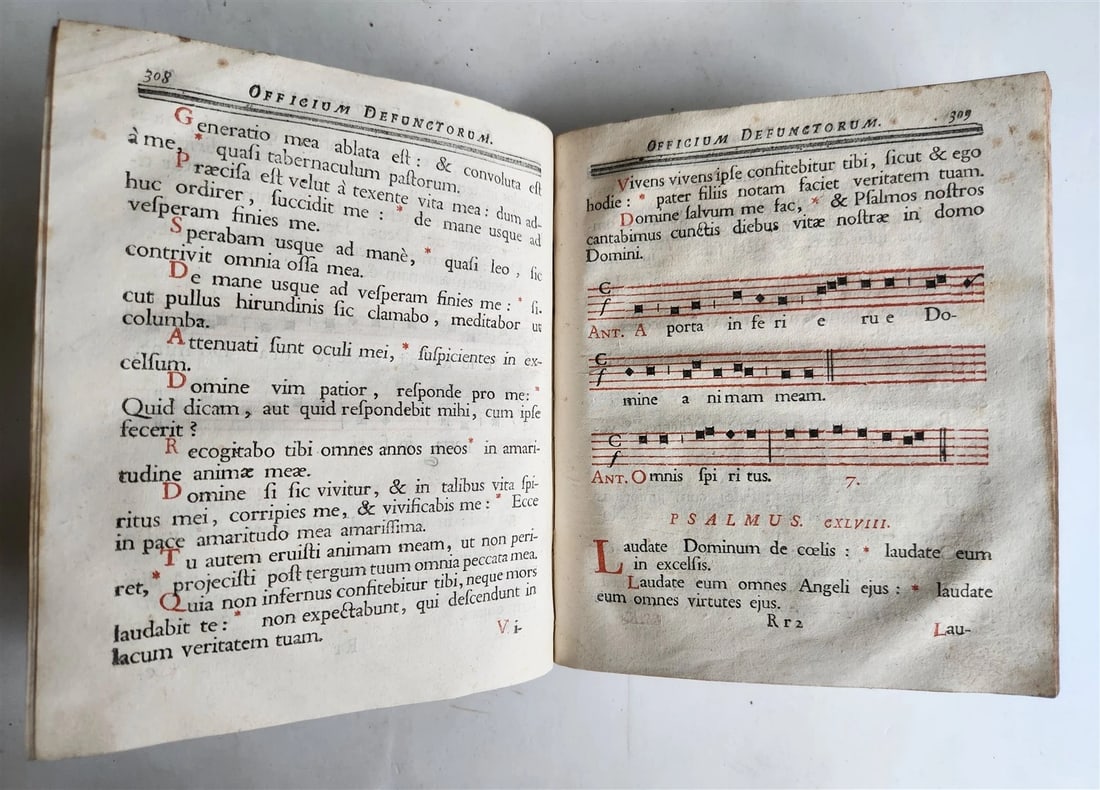 308
OFFICIUM DEFUNCTORUM.
Generatio mea ablata eſt : & convoluta eſt
à me, * quaſi tabernaculum paſtorum.
Præciſa eſt velut à texente vita mea : dum ad-
huc ordirer, ſuccidit me : * de mane usque ad
veſperam finies me.
Sperabam usque ad manè, * quaſi leo , ſic
contrivit omnia oſſa mea.
De mane usque ad veſperam finies me : * ſi-
cut pullus hirundinis ſic clamabo, meditabor ut
columba.
Attenuati ſunt oculi mei, * ſuſpicientes in ex-
celſum.
Domine vim patior, reſponde pro me: *
Quid dicam, aut quid reſpondebit mihi, cum ipſe
fecerit ?
Recogitabo tibi omnes annos meos * in amari-
tudine animæ meæ.
Domine ſi ſic vivitur, & in talibus vita ſpi-
ritus mei, corripies me, & vivificabis me : * Ecce
in pace amaritudo mea amariſſima.
Tu autem eruiſti animam meam, ut non peri-
ret, * projeciſti poſt tergum tuum omnia peccata mea.
Quia non infernus confitebitur tibi, neque mors
laudabit te : * non expectabunt, qui deſcendunt in
lacum veritatem tuam.
Vi-
OFFICIUM DEFUNCTORUM.
309
Vivens vivens ipſe confitebitur tibi, ſicut & ego
hodie : * pater filiis notam faciet veritatem tuam.
Domine ſalvum me fac, * & Pſalmos noſtros
cantabimus cunctis diebus vitæ noſtræ in domo
Domini.
ANT. A porta in fe ri e ru e Do-
mine a ni mam meam.
ANT. Omnis ſpi ri tus. 7.
PSALMUS. CXLVIII.
Laudate Dominum de cœlis : * laudate eum
in excelſis.
Laudate eum omnes Angeli ejus : * laudate
eum omnes virtutes ejus.
Rr2
Lau-